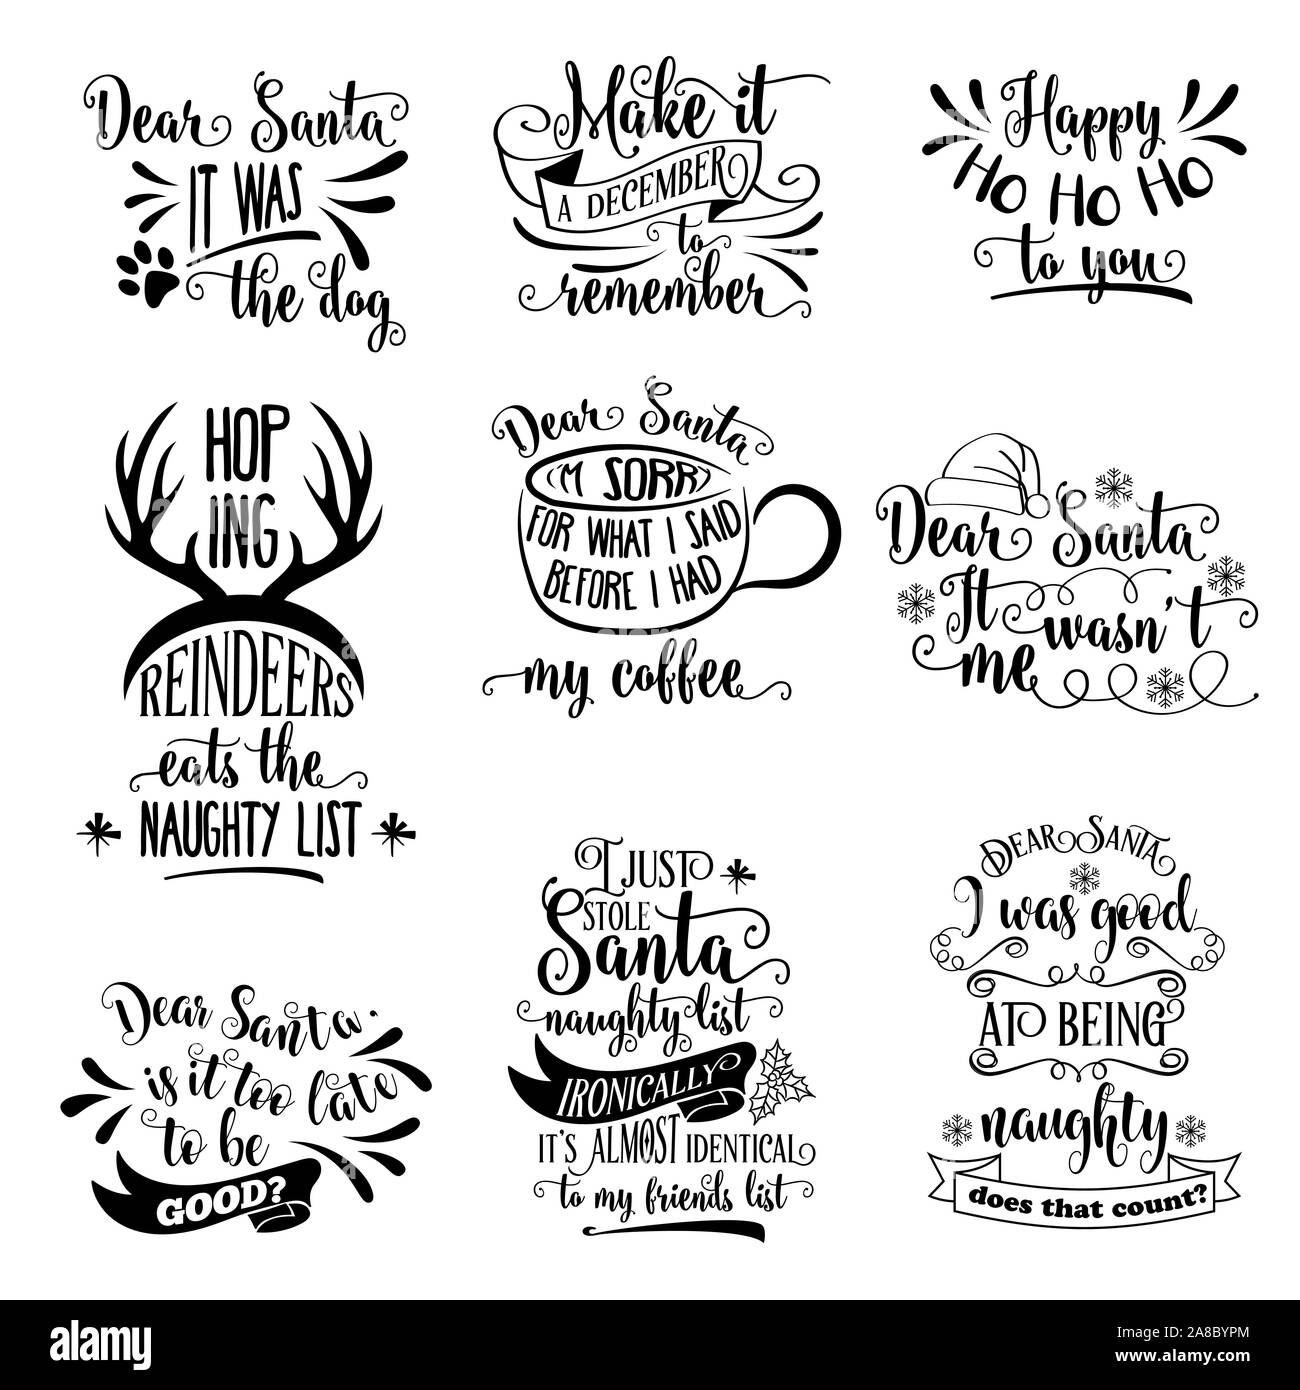 Dear Santa
IT WAS
the dog
Make it
A DECEMBER
to
remember
Happy
HO HO HO
to you
HOP
ING
REINDEERS
eats the
NAUGHTY LIST
Dear Santa
I'M SORRY
FOR WHAT I SAID
BEFORE I HAD
my coffee
Dear Santa
It wasn't
me
Dear Santa.
is it too late
to be
GOOD?
I JUST
STOLE
Santa
naughty list
IRONICALLY
IT'S ALMOST IDENTICAL
to my friends list
DEAR SANTA
I was good
AT BEING
naughty
does that count?
alamy
Image ID: 2A8BYPM
www.alamy.com